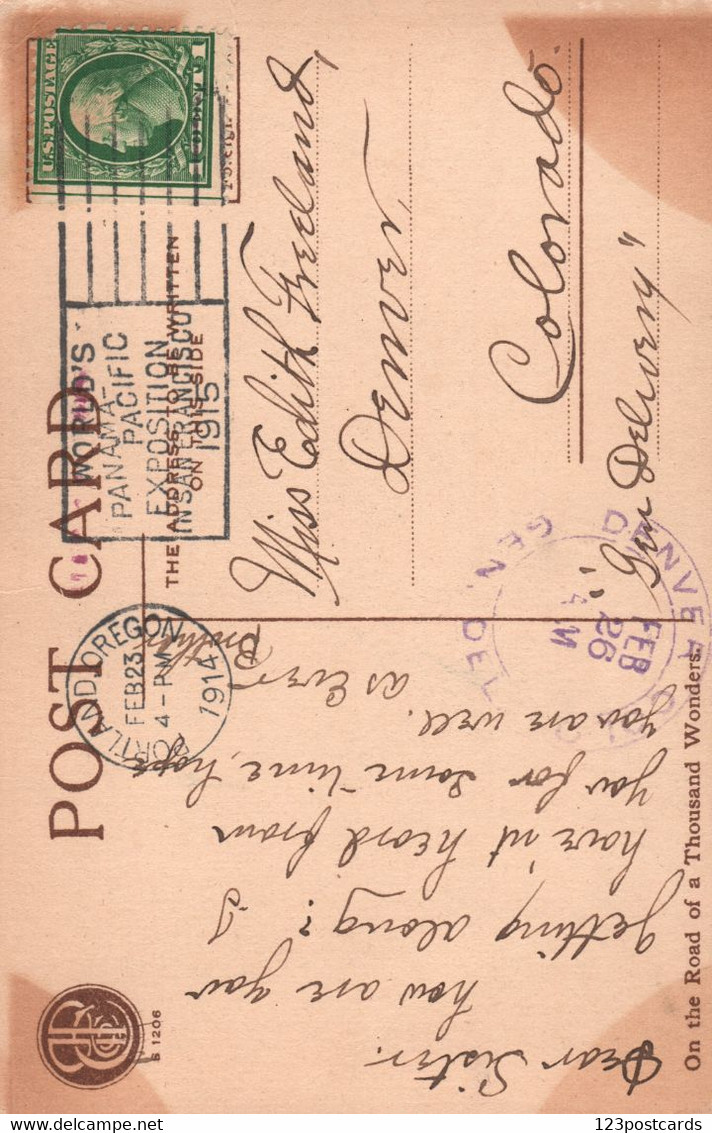 POST CARD
THE ADDRESS TO BE WRITTEN
ON THIS SIDE
U.S. POSTAGE
1 CENT 1
Foreign
WORLD'S
PANAMA-
PACIFIC
EXPOSITION
IN SAN FRANCISCO
1915
PORTLAND, OREGON
FEB 23
4 - PM
1914
Miss Edith Freeland,
Denver,
Colorado.
"Gen Delivery"
DENVER COLO
FEB
26
AM
GEN. DEL.
Dear Sister.
how are you
getting along? I
have'nt heard from
you for some time, hope
you are well.
as Ever
Brother
S 1206
On the Road of a Thousand Wonders.
123postcards